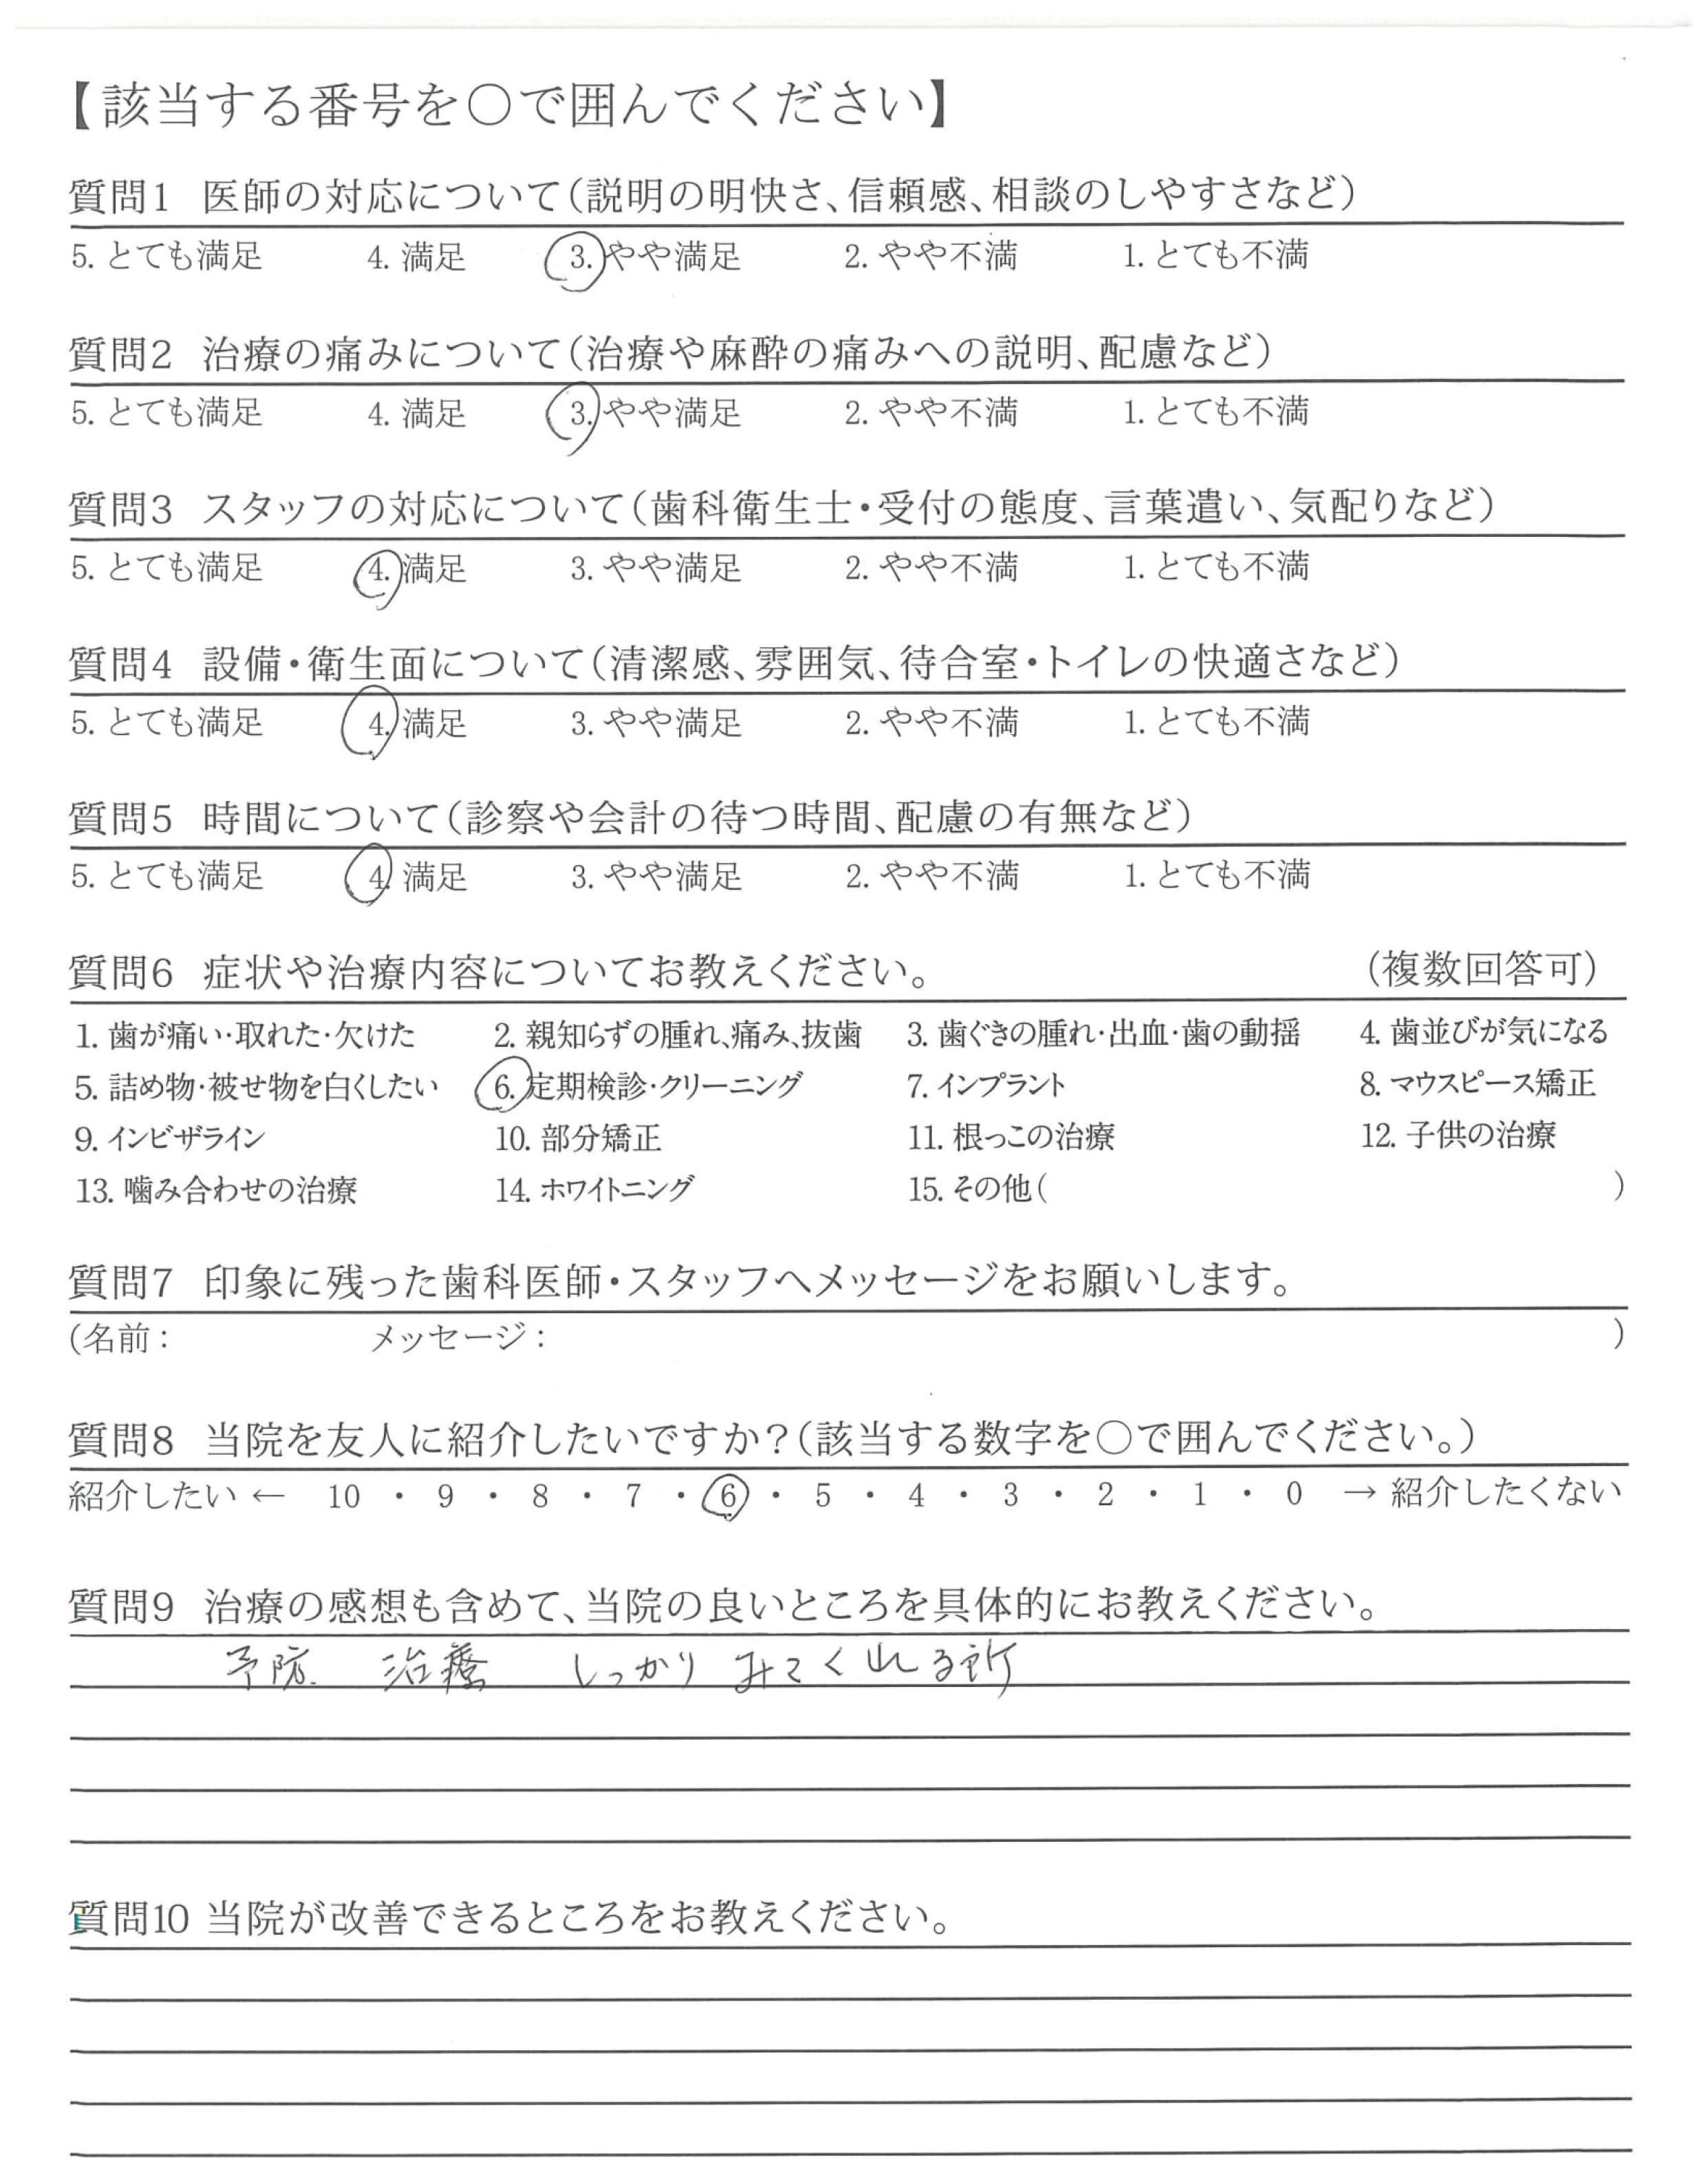 【該当する番号を○で囲んでください】
質問1 医師の対応について(説明の明快さ、信頼感、相談のしやすさなど)
5. とても満足 4. 満足 3. やや満足 2. やや不満 1. とても不満
質問2 治療の痛みについて(治療や麻酔の痛みへの説明、配慮など)
5. とても満足 4. 満足 3. やや満足 2. やや不満 1. とても不満
質問3 スタッフの対応について(歯科衛生士・受付の態度、言葉遣い、気配りなど)
5. とても満足 4. 満足 3. やや満足 2. やや不満 1. とても不満
質問4 設備・衛生面について(清潔感、雰囲気、待合室・トイレの快適さなど)
5. とても満足 4. 満足 3. やや満足 2. やや不満 1. とても不満
質問5 時間について(診察や会計の待つ時間、配慮の有無など)
5. とても満足 4. 満足 3. やや満足 2. やや不満 1. とても不満
質問6 症状や治療内容についてお教えください。 (複数回答可)
1. 歯が痛い・取れた・欠けた 2. 親知らずの腫れ、痛み、抜歯 3. 歯ぐきの腫れ・出血・歯の動揺 4. 歯並びが気になる
5. 詰め物・被せ物を白くしたい 6. 定期検診・クリーニング 7. インプラント 8. マウスピース矯正
9. インビザライン 10. 部分矯正 11. 根っこの治療 12. 子供の治療
13. 噛み合わせの治療 14. ホワイトニング 15. その他( )
質問7 印象に残った歯科医師・スタッフへメッセージをお願いします。
(名前： メッセージ： )
質問8 当院を友人に紹介したいですか？(該当する数字を○で囲んでください。)
紹介したい ← 10 ・ 9 ・ 8 ・ 7 ・ 6 ・ 5 ・ 4 ・ 3 ・ 2 ・ 1 ・ 0 → 紹介したくない
質問9 治療の感想も含めて、当院の良いところを具体的にお教えください。
予防 治療 しっかり みてくれる所
質問10 当院が改善できるところをお教えください。